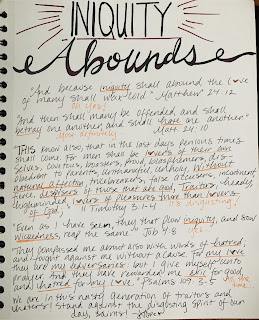 INIQUITY
Abounds
"And because iniquity shall abound the love
of many shall wax cold" Matthew 24:12
"And then shall many be offended, and shall
betray one another, and shall hate one another"
Matt. 24:10
"THIS know also, that in the last days perilous times
shall come. For men shall be lovers of their own
selves, covetous, boasters, proud, blasphemers, dis-
obedient to parents, unthankful, unholy, without
natural affection, trucebreakers, false accusers, incontinent,
fierce, despisers of those that are good, Traitors, heady,
highminded, lovers of pleasures more than lovers
of God," 2 Timothy 3:1-4 disgusting
"Even as I have seen, they that plow iniquity, and sow
wickedness, reap the same" Job 4:8
They compassed me about also with words of hatred;
and fought against me without a cause. For my love
they are my adversaries: but I give myself unto
prayer. And they have rewarded me evil for good,
and hatred for my love." Psalms 109:3-5
We are in this nasty generation of traitors and
haters! Stand against this disgusting spirit of our
day, saints!